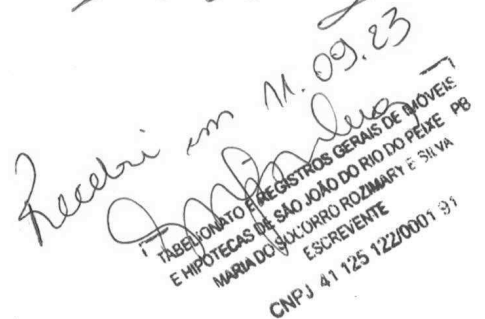 Recebi em 11.09.23
TABELIONATO E REGISTROS GERAIS DE IMÓVEIS
E HIPOTECAS DE SÃO JOÃO DO RIO DO PEIXE PB
MARIA DO SOCORRO ROZIMARY E SILVA
ESCREVENTE
CNPJ 41 125 122/0001 91